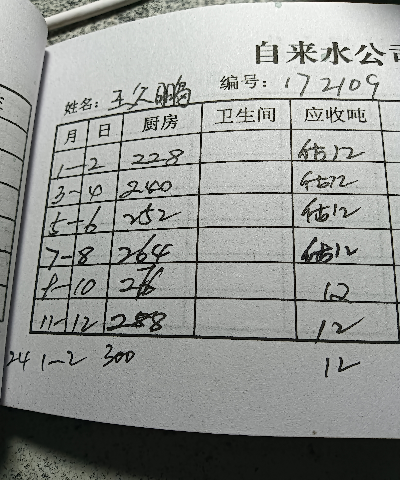 自来水公司
姓名:王久鹏 编号:172109
月 日 厨房 卫生间 应收吨
1-2 228 估12
3-4 240 估12
5-6 252 估12
7-8 264 估12
9-10 276 12
11-12 288 12
24 1-2 300 12